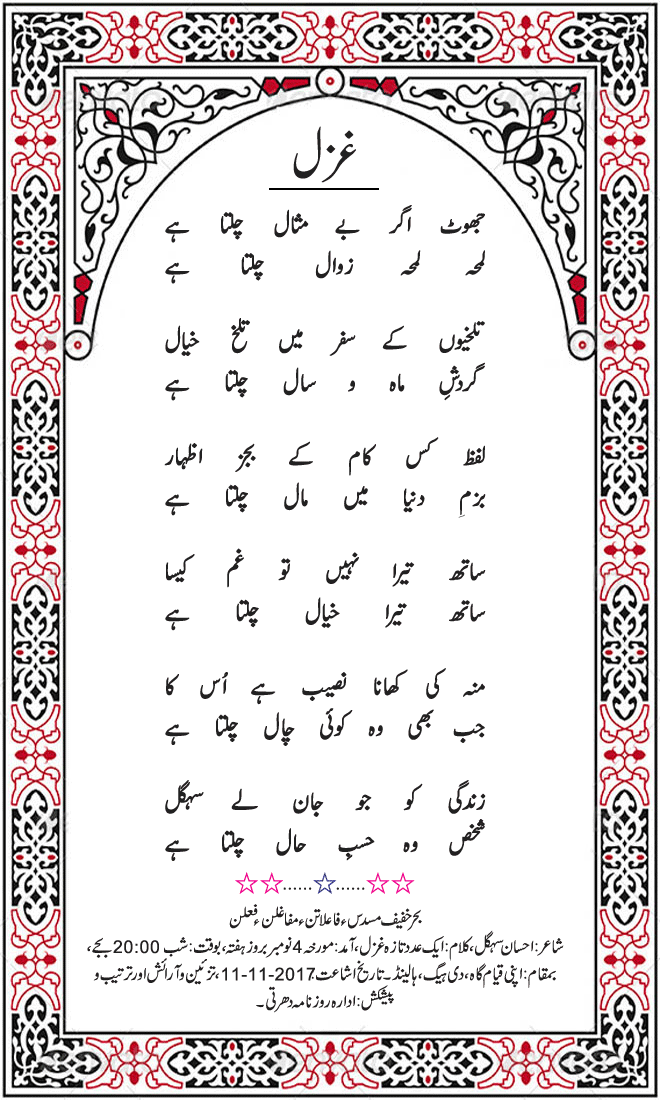 غزل
جھوٹ اگر بے مثال چلتا ہے
لمحہ لمحہ زوال چلتا ہے
تلخیوں کے سفر میں تلخ خیال
گردشِ ماہ و سال چلتا ہے
لفظ کس کام کے بجز اظہار
بزمِ دنیا میں مال چلتا ہے
ساتھ تیرا نہیں تو غم کیسا
ساتھ تیرا خیال چلتا ہے
منہ کی کھانا نصیب ہے اُس کا
جب بھی وہ کوئی چال چلتا ہے
زندگی کو جو جان لے سہگل
شخص وہ حسبِ حال چلتا ہے
بحر خفیف مسدس، فاعلاتن، مفاعلن، فعلن
شاعر: احسان سہگل، کلام: ایک عدد تازہ غزل، آمد: مورخہ 4 نومبر بروز ہفتہ، بوقت: شب 20:00 بجے،
بمقام: اپنی قیام گاہ، دی ہیگ، ہالینڈ۔ تاریخ اشاعت، 2017-11-11، تزئین و آرائش اور ترتیب و
پیشکش: ادارہ روزنامہ دھرتی۔